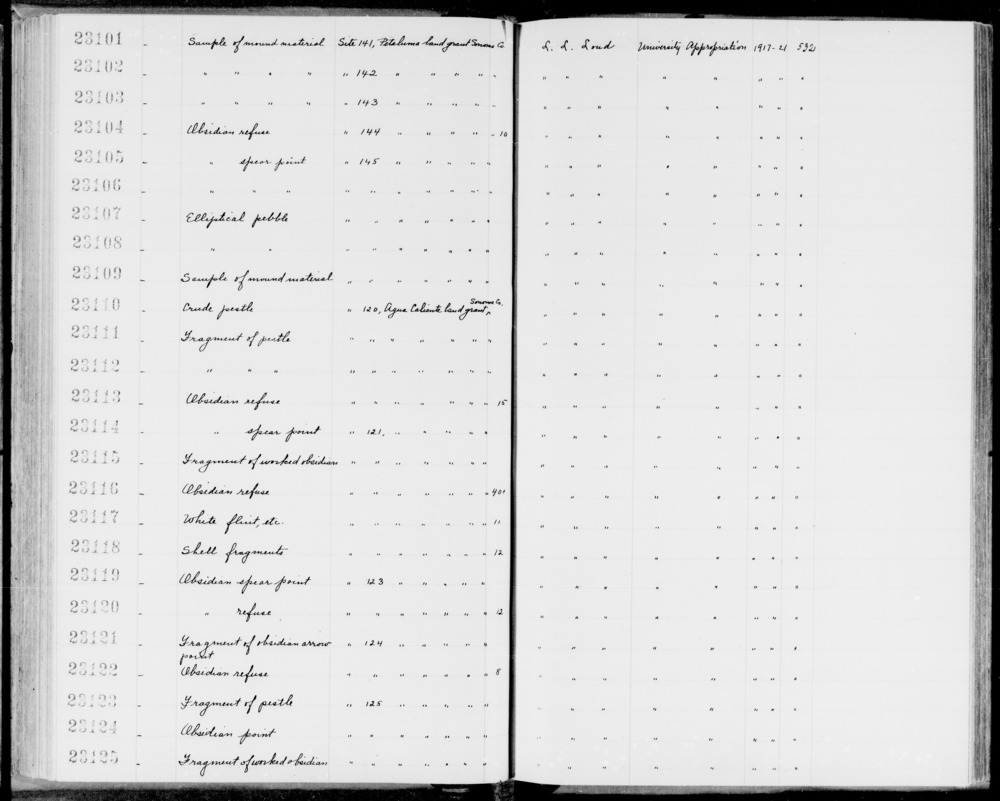 23101 - Sample of mound material Site 141, Petaluma land grant Sonoma Co. L. L. Loud University Appropriation 1917-21 532
23102 - " " " " " 142 " " " " " " " " " " " " "
23103 - " " " " " 143 " " " " " " " " " " " " "
23104 - Obsidian refuse " 144 " " " " " 10 " " " " " " " "
23105 - " spear point " 145 " " " " " " " " " " " " "
23106 - " " " " " " " " " " " " " " " " " "
23107 - Elliptical pebble " " " " " " " " " " " " " " "
23108 - " " " " " " " " " " " " " " " " "
23109 - Sample of mound material " " " " " " " " " " " " " " "
23110 - Crude pestle " 120, Agua Caliente land grant, Sonoma Co. " " " " " " " "
23111 - Fragment of pestle " " " " " " " " " " " " " " "
23112 - " " " " " " " " " " " " " " " " " "
23113 - Obsidian refuse " " " " " " " 15 " " " " " " " "
23114 - " spear point " 121, " " " " " " " " " " " " "
23115 - Fragment of worked obsidian " " " " " " " " " " " " " " "
23116 - Obsidian refuse " " " " " " " 401 " " " " " " " "
23117 - White flint, etc. " " " " " " " 11 " " " " " " " "
23118 - Shell fragments " " " " " " " 12 " " " " " " " "
23119 - Obsidian spear point " 123 " " " " " " " " " " " " "
23120 - " refuse " " " " " " " 12 " " " " " " " "
23121 - Fragment of obsidian arrow " 124 " " " " " " " " " " " " "
point
23122 - Obsidian refuse " " " " " " " 8 " " " " " " " "
23123 - Fragment of pestle " 125 " " " " " " " " " " " " "
23124 - Obsidian point " " " " " " " " " " " " " " "
23125 - Fragment of worked obsidian " " " " " " " " " " " " " " "